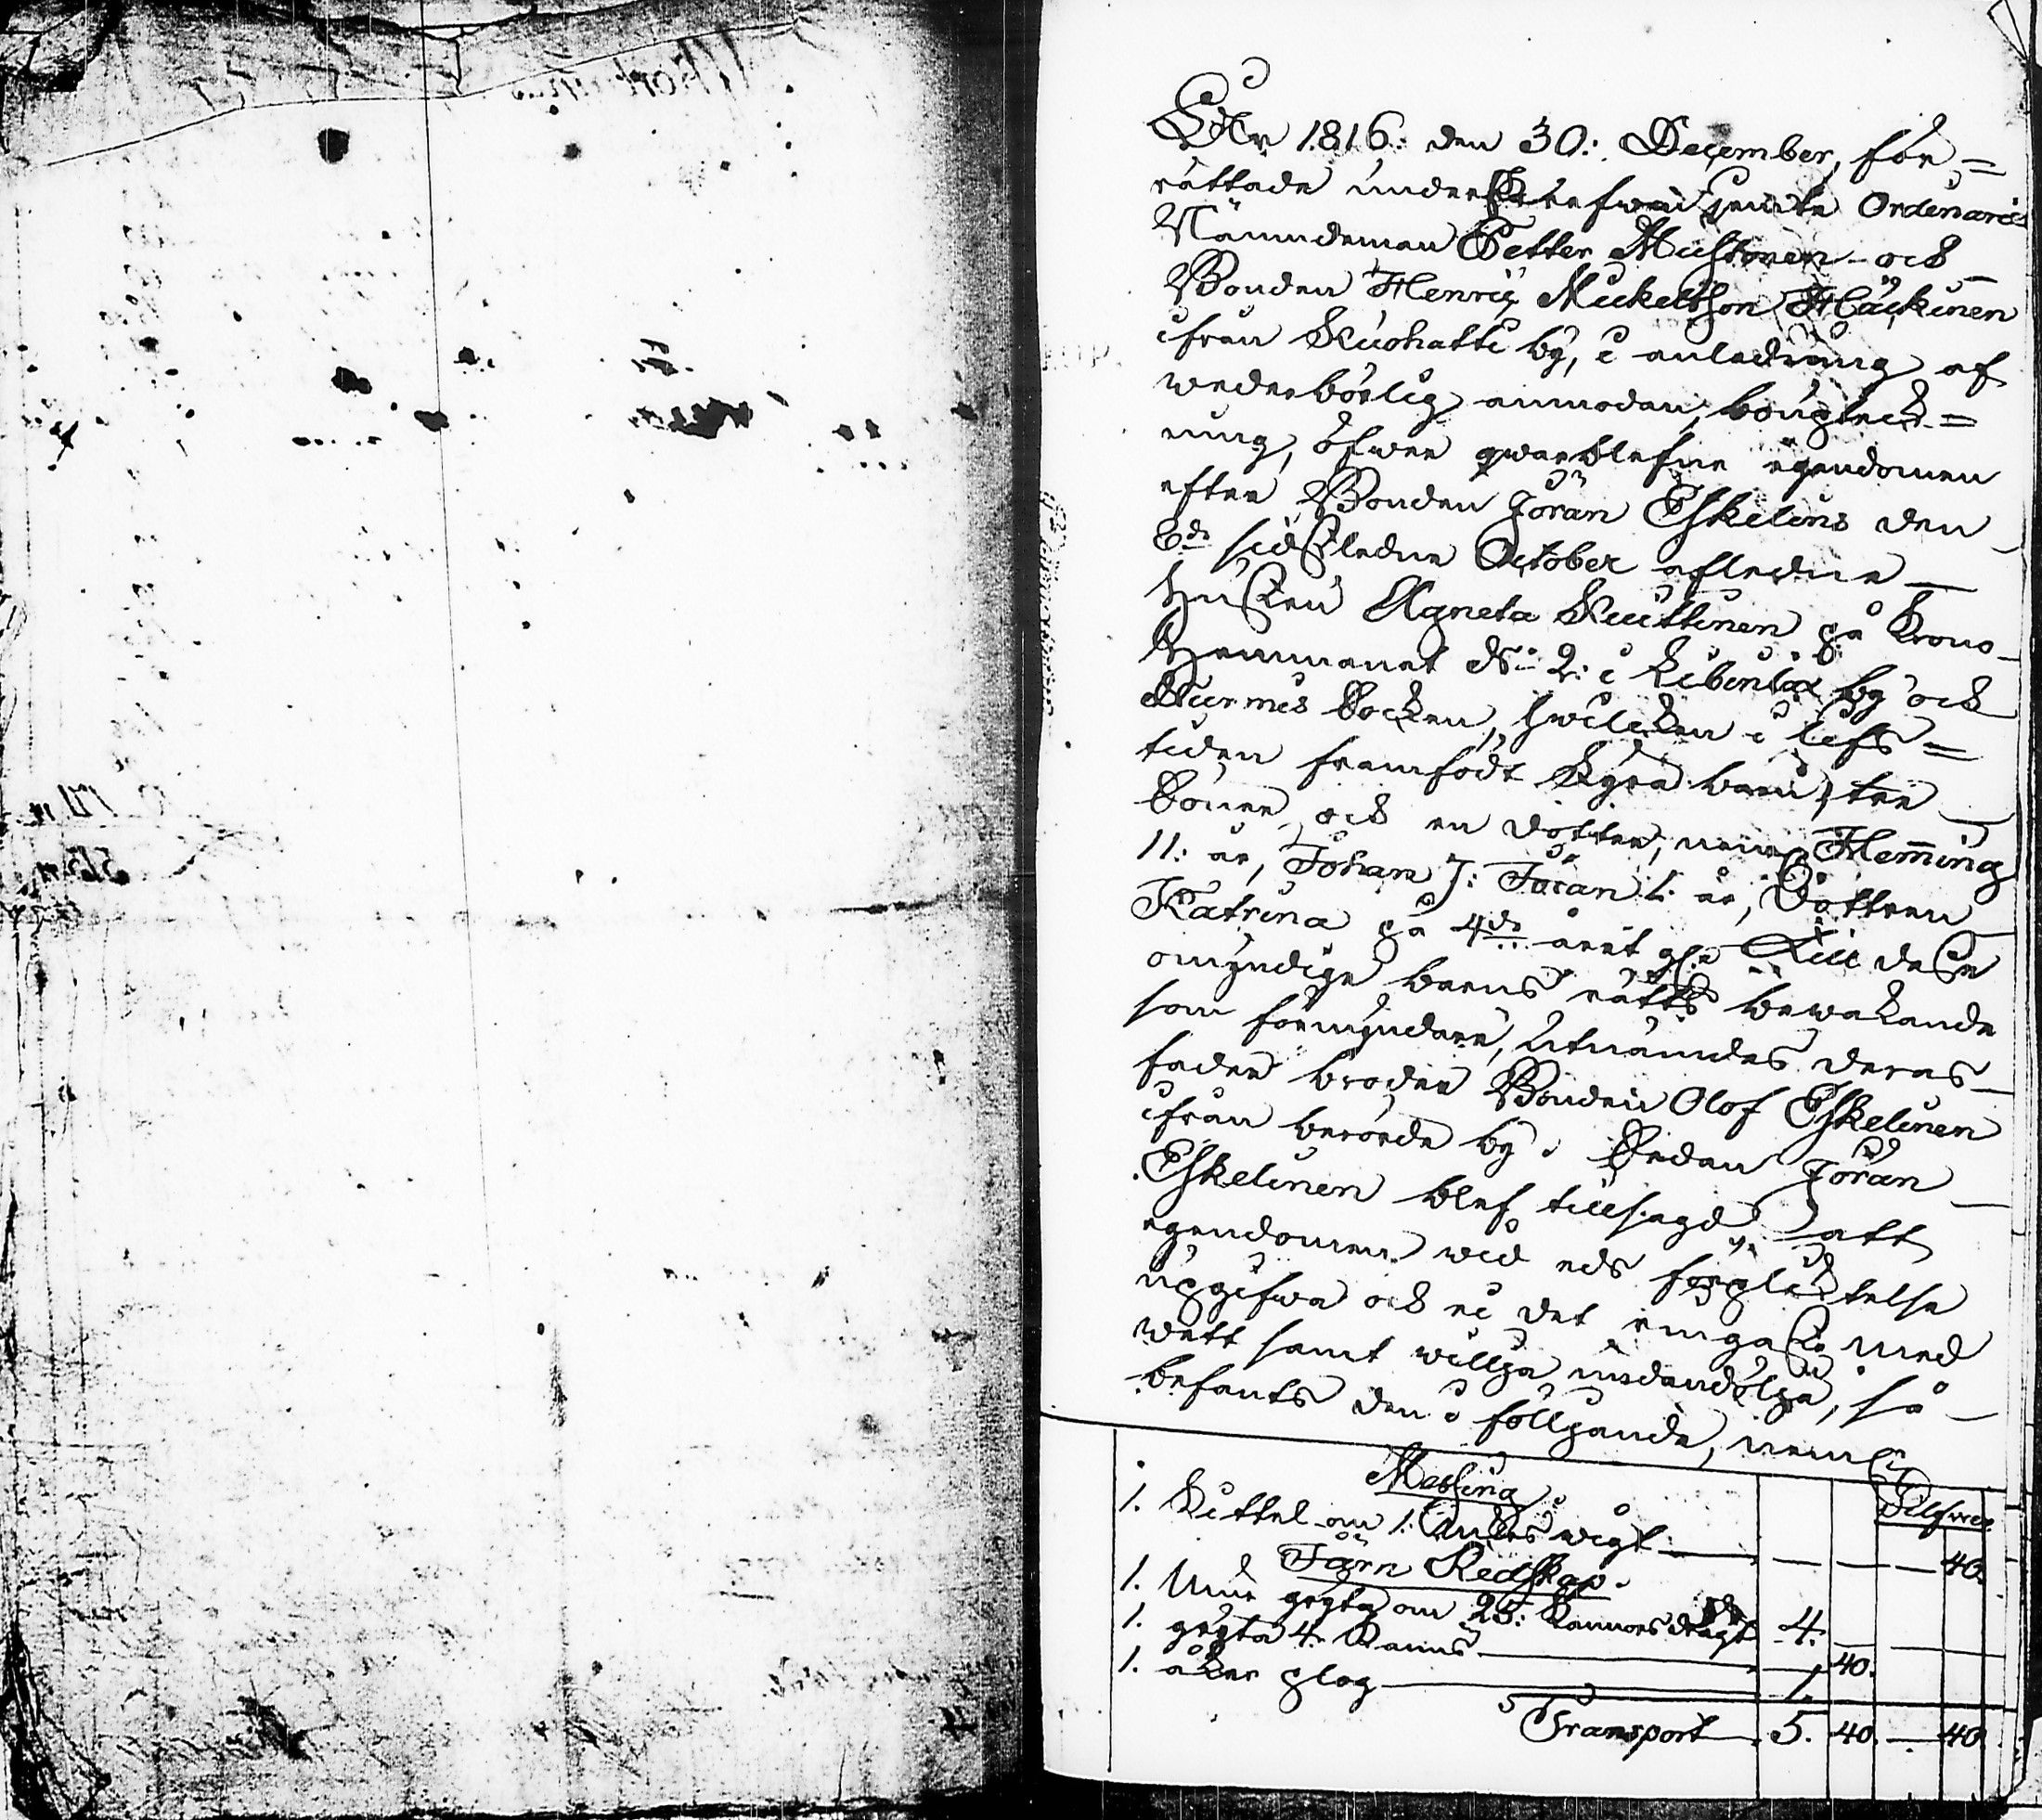 År 1816: den 30: December, för=
rättade underskrefwen jemte Ordinarie
Nämndeman Petter Mustonen och
Bonden Henric Mickelsson Häikinen
ifrån Kuohatti by, i anledning af
wederbörlig anmodan, bouptek=
ning, öfwer qwarblefne egendomen
efter Bonden Jöran Eskelins den
6de sidstledne October aflednе
Hustru Agneta Kuittinen på Krono
Hemmanet No 2: i by och
Nurmis Socken, hwilcken i lifs=
tiden framfödt fyra barn, tre
Söner och en dotter, nemn Hemming
11: år, Johan 7: Jöran 1: år, Dottren
Katrina på 4de året gl: Till desse
omyndige barns rätts bewakande
som förmyndare, Utnämndes deras
fader broder Bonden Olof Eskelinen
ifrån berörde by. Sedan Jöran
Eskelinen blef tillsagd att
egendomen wid eds förplicktelse
uppgifwa och ej det ringaste med
wett samt willja undandölja, så
befants den i följande, neml:
Messing Silfwer
1. Kittel om 1. wigt 40.
Järn Redskap.
1. Mur gryta om 25: Kannors dragt 4.
1. gryta 4. Kanns 40.
1. åker plog 1.
Transport 5. 40. 40.